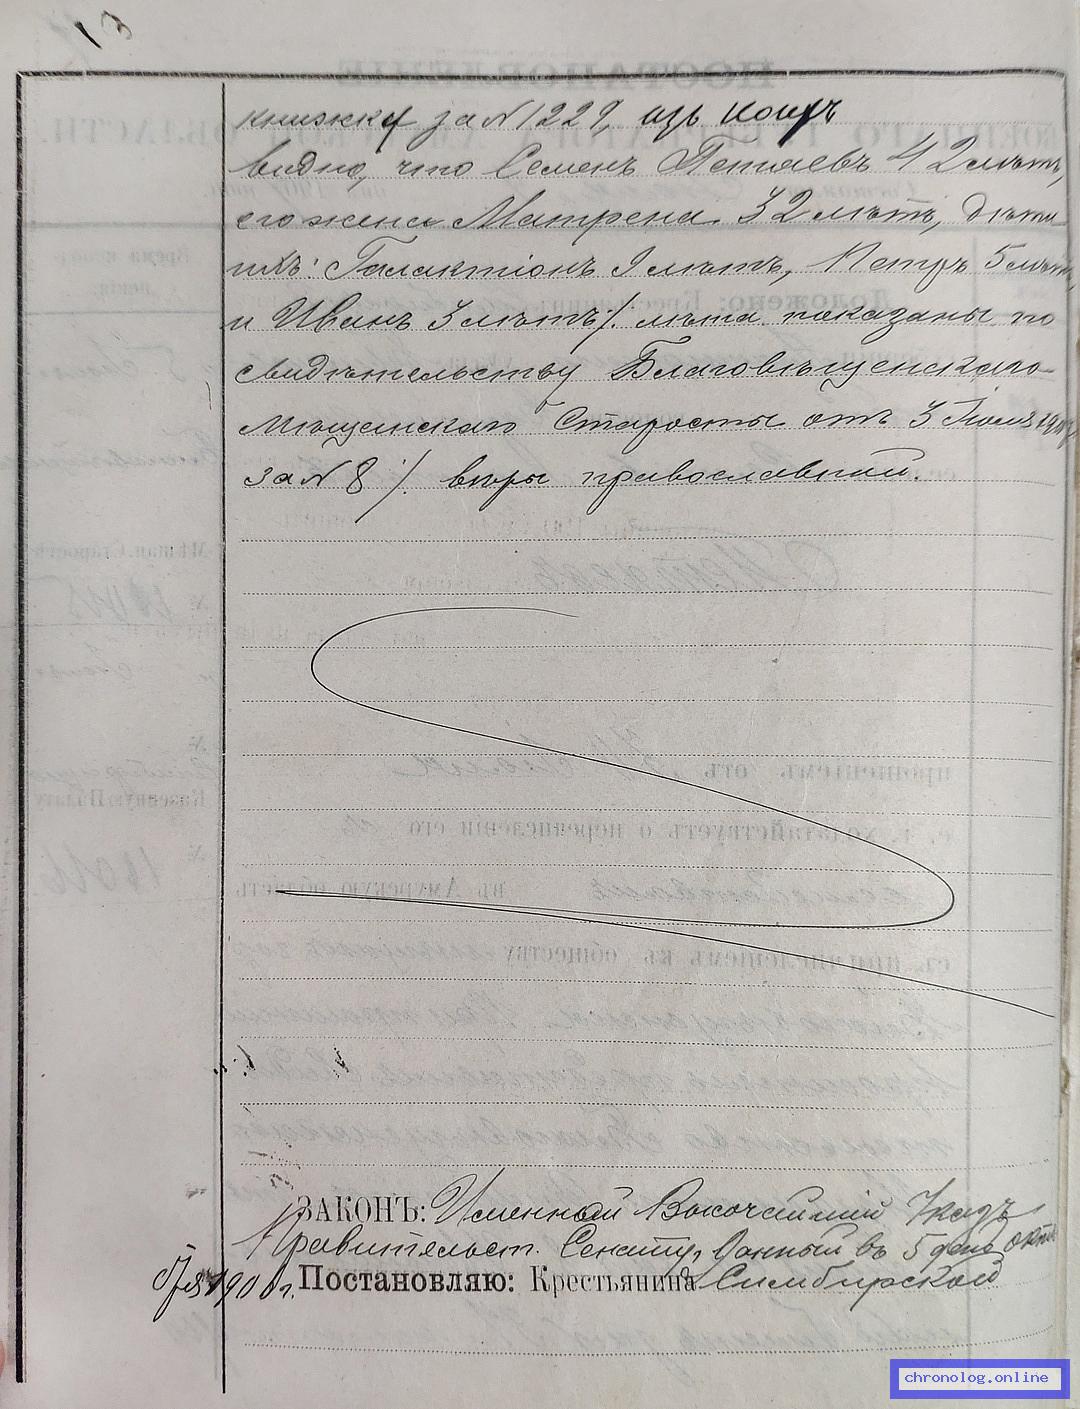 13
книжку за N 1229, изъ коихъ
видно, что Семенъ Петаевъ 42 лѣтъ,
его жена Матрена 32 лѣтъ, дѣти
ихъ: Галактіонъ 9 лѣтъ, Петръ 5 лѣтъ,
и Иванъ 3 лѣтъ /. лѣта показаны по
свидѣтельству Благовѣщенскаго
Мѣщанскаго Старосты отъ 3 Іюля
за N 8 /. вѣры православной.
ЗАКОНЪ: Именной Высочайшій Указъ
Правительст. Сенату, данный въ 5 день окт
ября 1906 г. Постановляю: Крестьянина Симбирской
chronolog.online